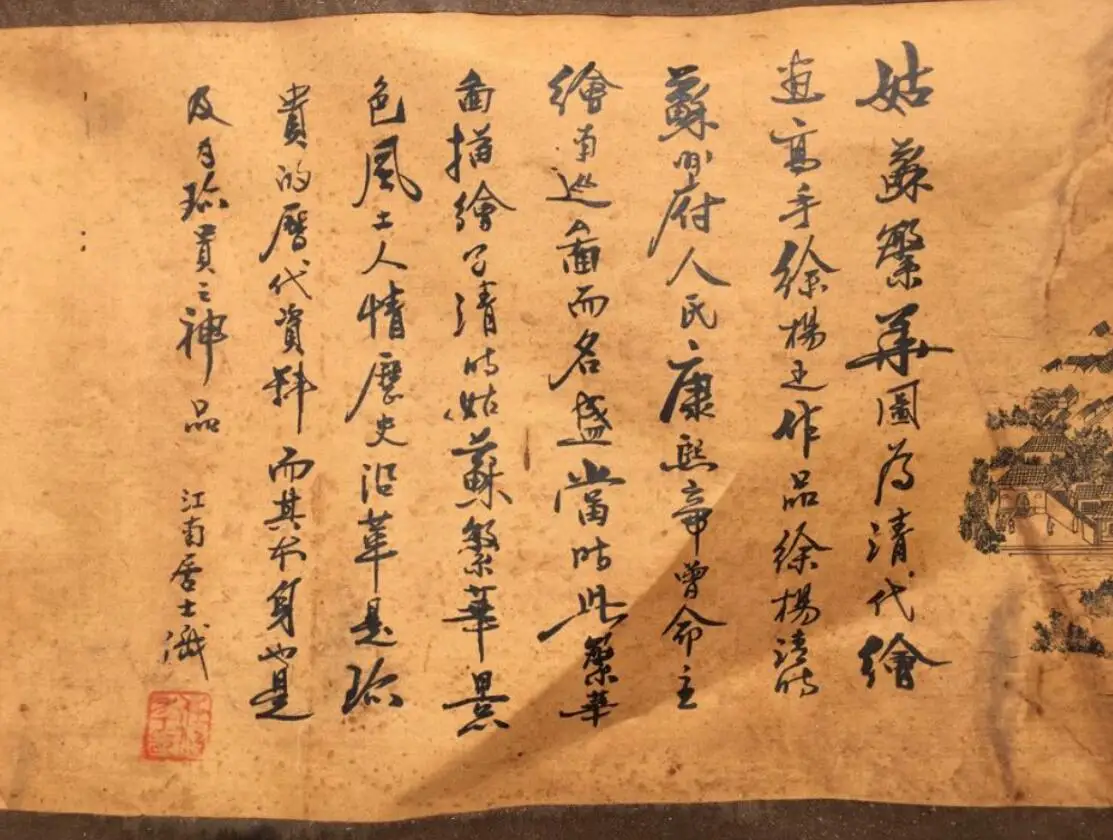 姑蘇繁華圖為清代繪
畫高手徐楊之作品徐楊清時
蘇州府人民康熙帝曾命主
繪南巡圖而名盛當時此繁華
圖描繪了清時姑蘇繁華景
色風土人情歷史沿革是珍
貴的歷代資料而其本身也是
及為珍貴之神品
江南居士識